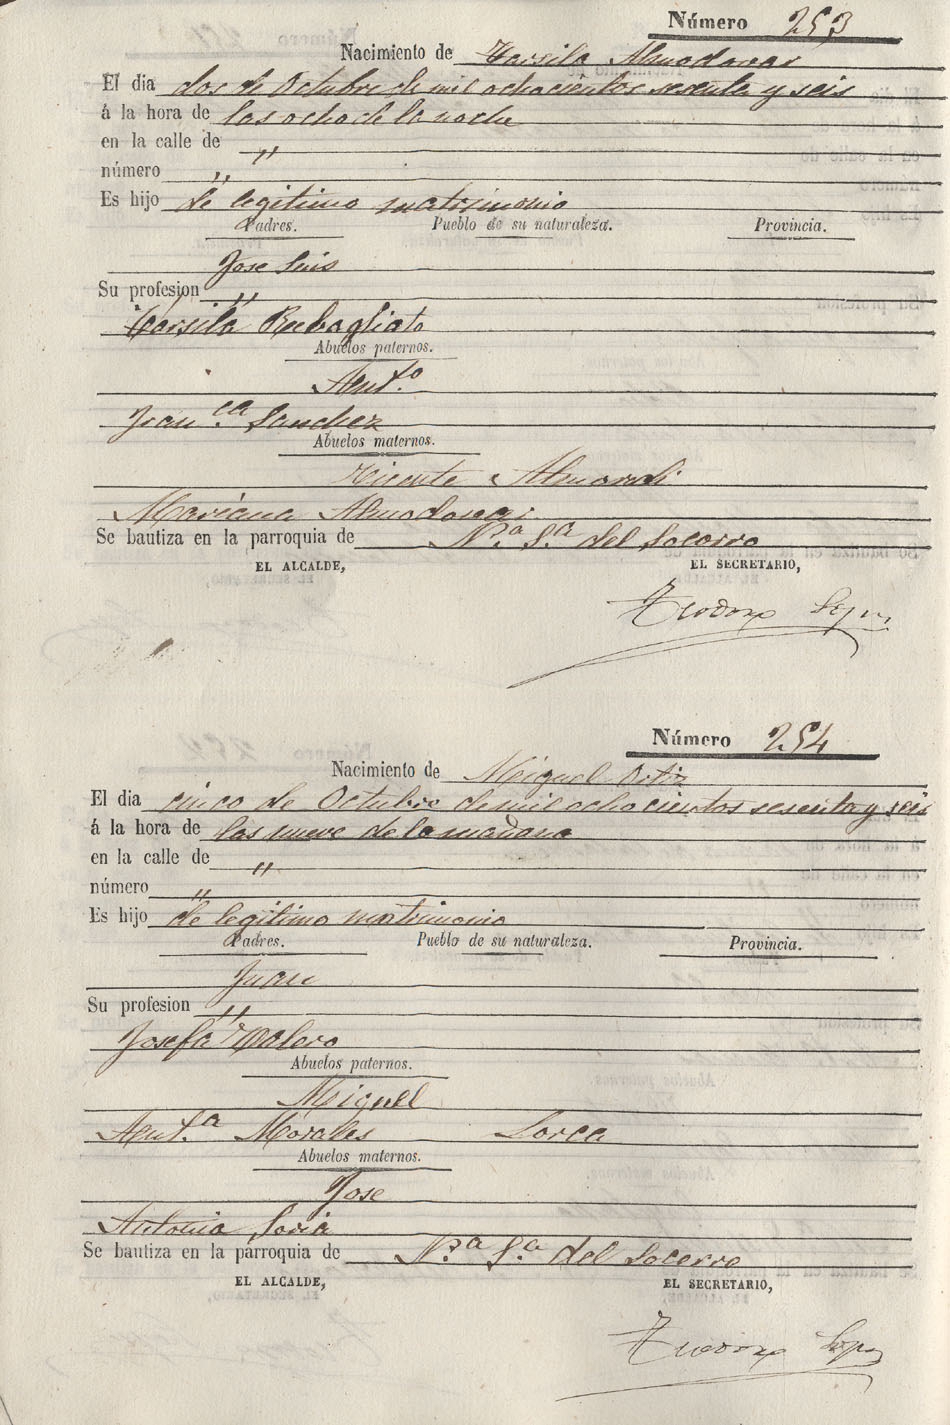 Número 253
Nacimiento de Tarsila Almodovar
El dia dos de Octubre de mil ochocientos sesenta y seis
á la hora de las ocho de la noche
en la calle de "
número "
Es hijo de legitimo matrimonio
Padres. Pueblo de su naturaleza. Provincia.
Jose Luis
Su profesion "
Tarsila Rebagliato
Abuelos paternos.
Ant.º
Fran.ca Sanchez
Abuelos maternos.
Vicente
Mariana Almodovar
Se bautiza en la parroquia de N.ª S.ª del Socorro
EL ALCALDE, EL SECRETARIO,
Teodoro Lopez
Número 254
Nacimiento de Miguel Ortiz
El dia cinco de Octubre de mil ochocientos sesenta y seis
á la hora de las nueve de la mañana
en la calle de "
número "
Es hijo de legitimo matrimonio
Padres. Pueblo de su naturaleza. Provincia.
Juan
Su profesion "
Josefa Valero
Abuelos paternos.
Miguel
Ant.ª Morales Lorca
Abuelos maternos.
Jose
Antonia Soria
Se bautiza en la parroquia de N.ª S.ª del Socorro
EL ALCALDE, EL SECRETARIO,
Teodoro Lopez